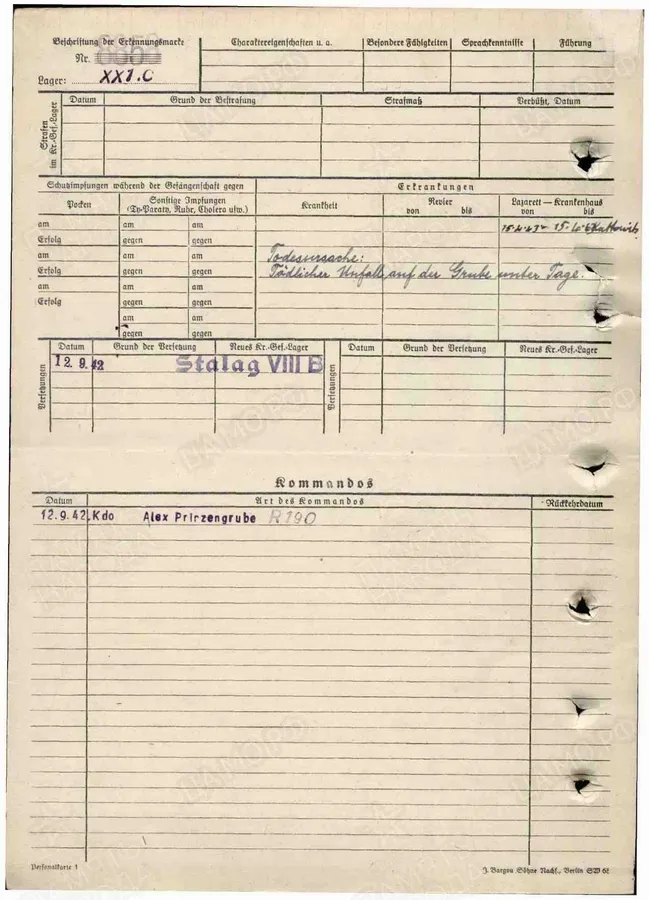 Beschriftung der Erkennungsmarke
Nr.
Lager: XXI.C
Charaktereigenschaften u. a.
Besondere Fähigkeiten
Sprachkenntnisse
Führung
Strafen im Kr.-Gef.-Lager
Datum
Grund der Bestrafung
Strafmaß
Verbüßt, Datum
Schutzimpfungen während der Gefangenschaft gegen
Erkrankungen
Pocken
Sonstige Impfungen
(Ty-Paraty, Ruhr, Cholera usw.)
Krankheit
Revier
von bis
Lazarett — Krankenhaus
von bis
am am am
Erfolg gegen gegen
am am am
Todesursache:
Erfolg gegen gegen
Tödlicher Unfall auf der Grube unter Tage.
am am am
Erfolg gegen gegen
am am
gegen gegen
Versetzungen
Datum Grund der Versetzung Neues Kr.-Gef.-Lager
12.9.42 Stalag VIII B
Versetzungen
Datum Grund der Versetzung Neues Kr.-Gef.-Lager
Kommandos
Datum Art des Kommandos Rückkehrdatum
12.9.42 Kdo Alex Prinzengrube R190
Personalkarte 1
J. Bargou Söhne Nachf., Berlin SW 61